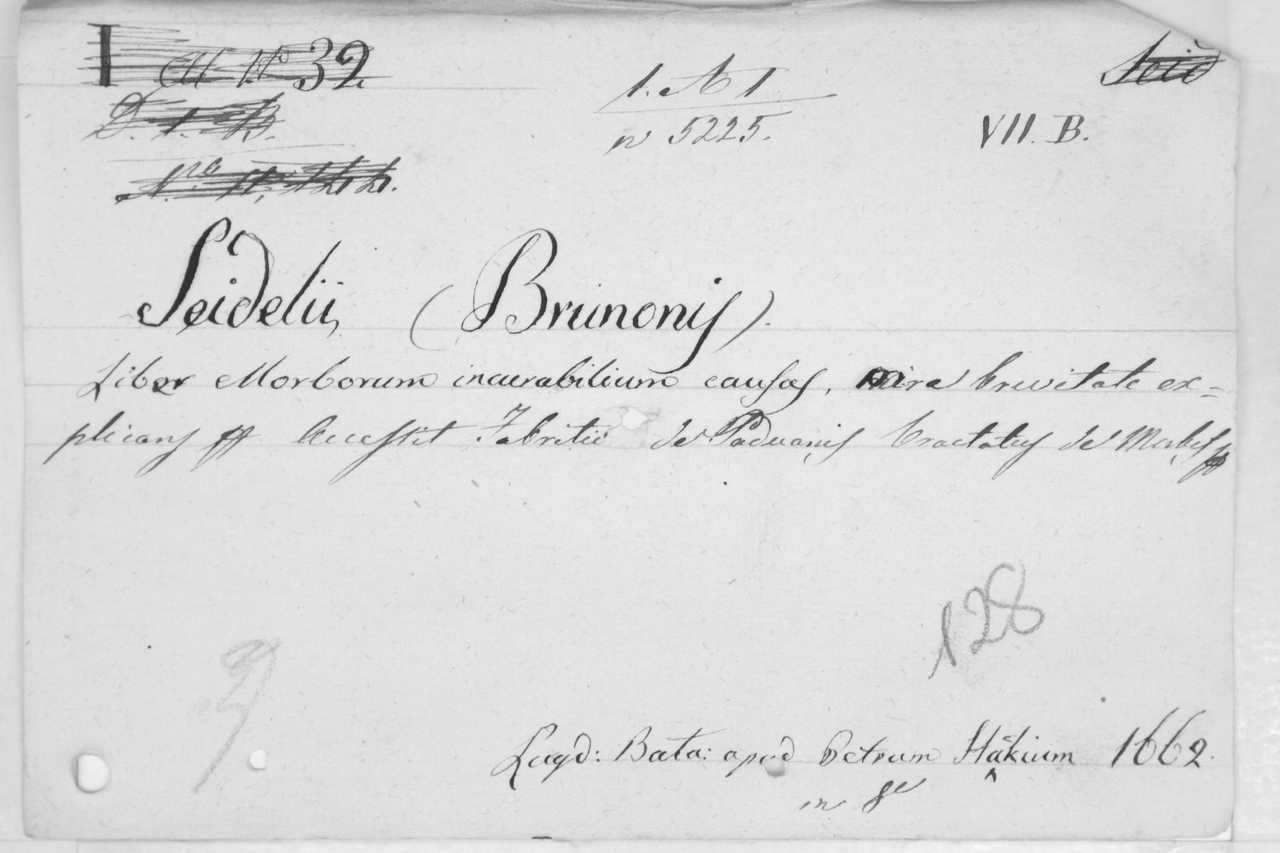 I
32
1. N 1
n 5225.
VII. B.
Seid
Seidelii, (Brunonis).
Liber Morborum incurabilium causas, mira brevitate ex=
plicans Accessit Fabritii de Paduanis tractatus de Morbis
128
Lugd: Bata: apud Petrum Hákium 1662.
in 8º